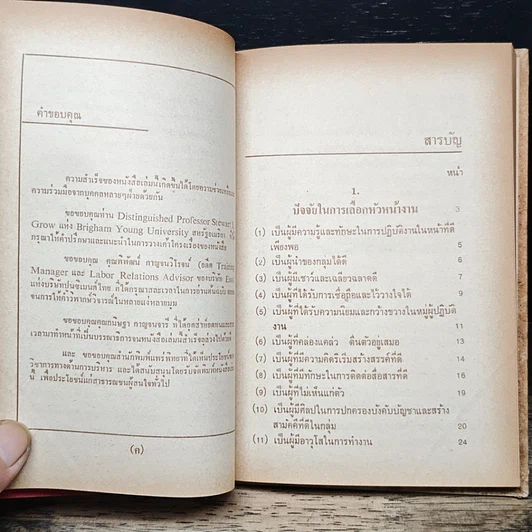 คำขอบคุณ
ความสำเร็จของหนังสือเล่มนี้เกิดขึ้นได้โดยความช่วยเหลือและ
ความร่วมมือจากบุคคลหลายๆฝ่ายด้วยกัน
ขอขอบคุณท่าน Distinguished Professor Stewart L.
Grow แห่ง Brigham Young University สหรัฐอเมริกา ที่ได้
กรุณาให้คำปรึกษาและแนะนำในการวางเค้าโครงเรื่องของหนังสือ
ขอขอบคุณ คุณพิพัฒน์ กาญจนวิโรจน์ (อดีต Training
Manager และ Labor Relations Advisor ของบริษัท
แห่งบริษัทปูนซิเมนต์ไทย ที่ได้กรุณาสละเวลาในการอ่านต้นฉบับ
จนการให้ก้าวพากย์วิจารณ์ในหลายแง่หลายมุม
ขอขอบคุณคุณกนิษฐา กาญจนจารี ที่ได้
เวลามาทำหน้าที่เป็นบรรณาธิการจนหนังสือเล่มนี้สำเร็จลุล่วงไปได้ดี
และ ขอขอบคุณสำนักพิมพ์แพร่พิทยาที่ได้เห็นประโยชน์
วิชาการทางด้านการบริหาร และได้สนับสนุนโดยรับจัดพิมพ์หนังสือ
นี้ เพื่อประโยชน์แก่สาธารณชนผู้สนใจทั่วไป
(ค)
สารบัญ
หน้า
1.
ปัจจัยในการเลือกหัวหน้างาน 3
(1) เป็นผู้มีความรู้และทักษะในการปฏิบัติงานในหน้าที่ดี
เพียงพอ 5
(2) เป็นผู้นำของกลุ่มได้ดี 6
(3) เป็นผู้มีเชาว์และเฉลียวฉลาดดี 7
(4) เป็นผู้ที่ได้รับการเชื่อถือและไว้วางใจได้ 9
(5) เป็นผู้ที่ได้รับความนิยมและกว้างขวางในหมู่ผู้ปฏิบัติ
งาน 11
(6) เป็นผู้ที่คล่องแคล่ว ตื่นตัวอยู่เสมอ 13
(7) เป็นผู้มีความคิดริเริ่มสร้างสรรค์ที่ดี 14
(8) เป็นผู้ที่มีทักษะในการติดต่อสื่อสารที่ดี 16
(9) เป็นผู้ที่ไม่เห็นแก่ตัว 19
(10) เป็นผู้มีศิลปในการปกครองบังคับบัญชาและสร้าง
สามัคคีที่ดีในกลุ่ม 20
(11) เป็นผู้มีอาวุโสในการทำงาน 24